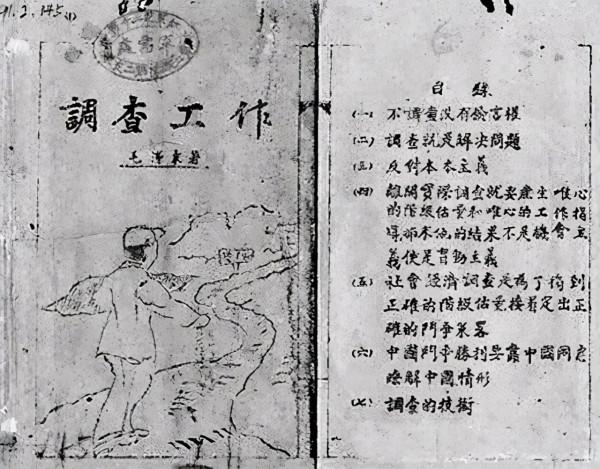 調查工作
毛澤東著
目錄
(一) 不調查沒有發言權
(二) 調查就是解決問題
(三) 反對本本主義
(四) 離開實際調查就要產生唯心
的階級估量和唯心的工作指
導那末他的結果不是機會主
義便是盲動主義
(五) 社會經濟調查是為了得到
正確的階級估量接着定出正
確的鬥爭策略
(六) 中國鬥爭勝利要靠中國同志
瞭解中國情形
(七) 調查的技術